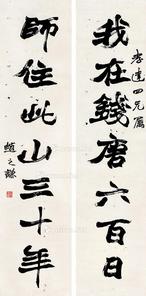 我在錢唐六百日
孝達四兄屬
師住此山三十年
趙之謙